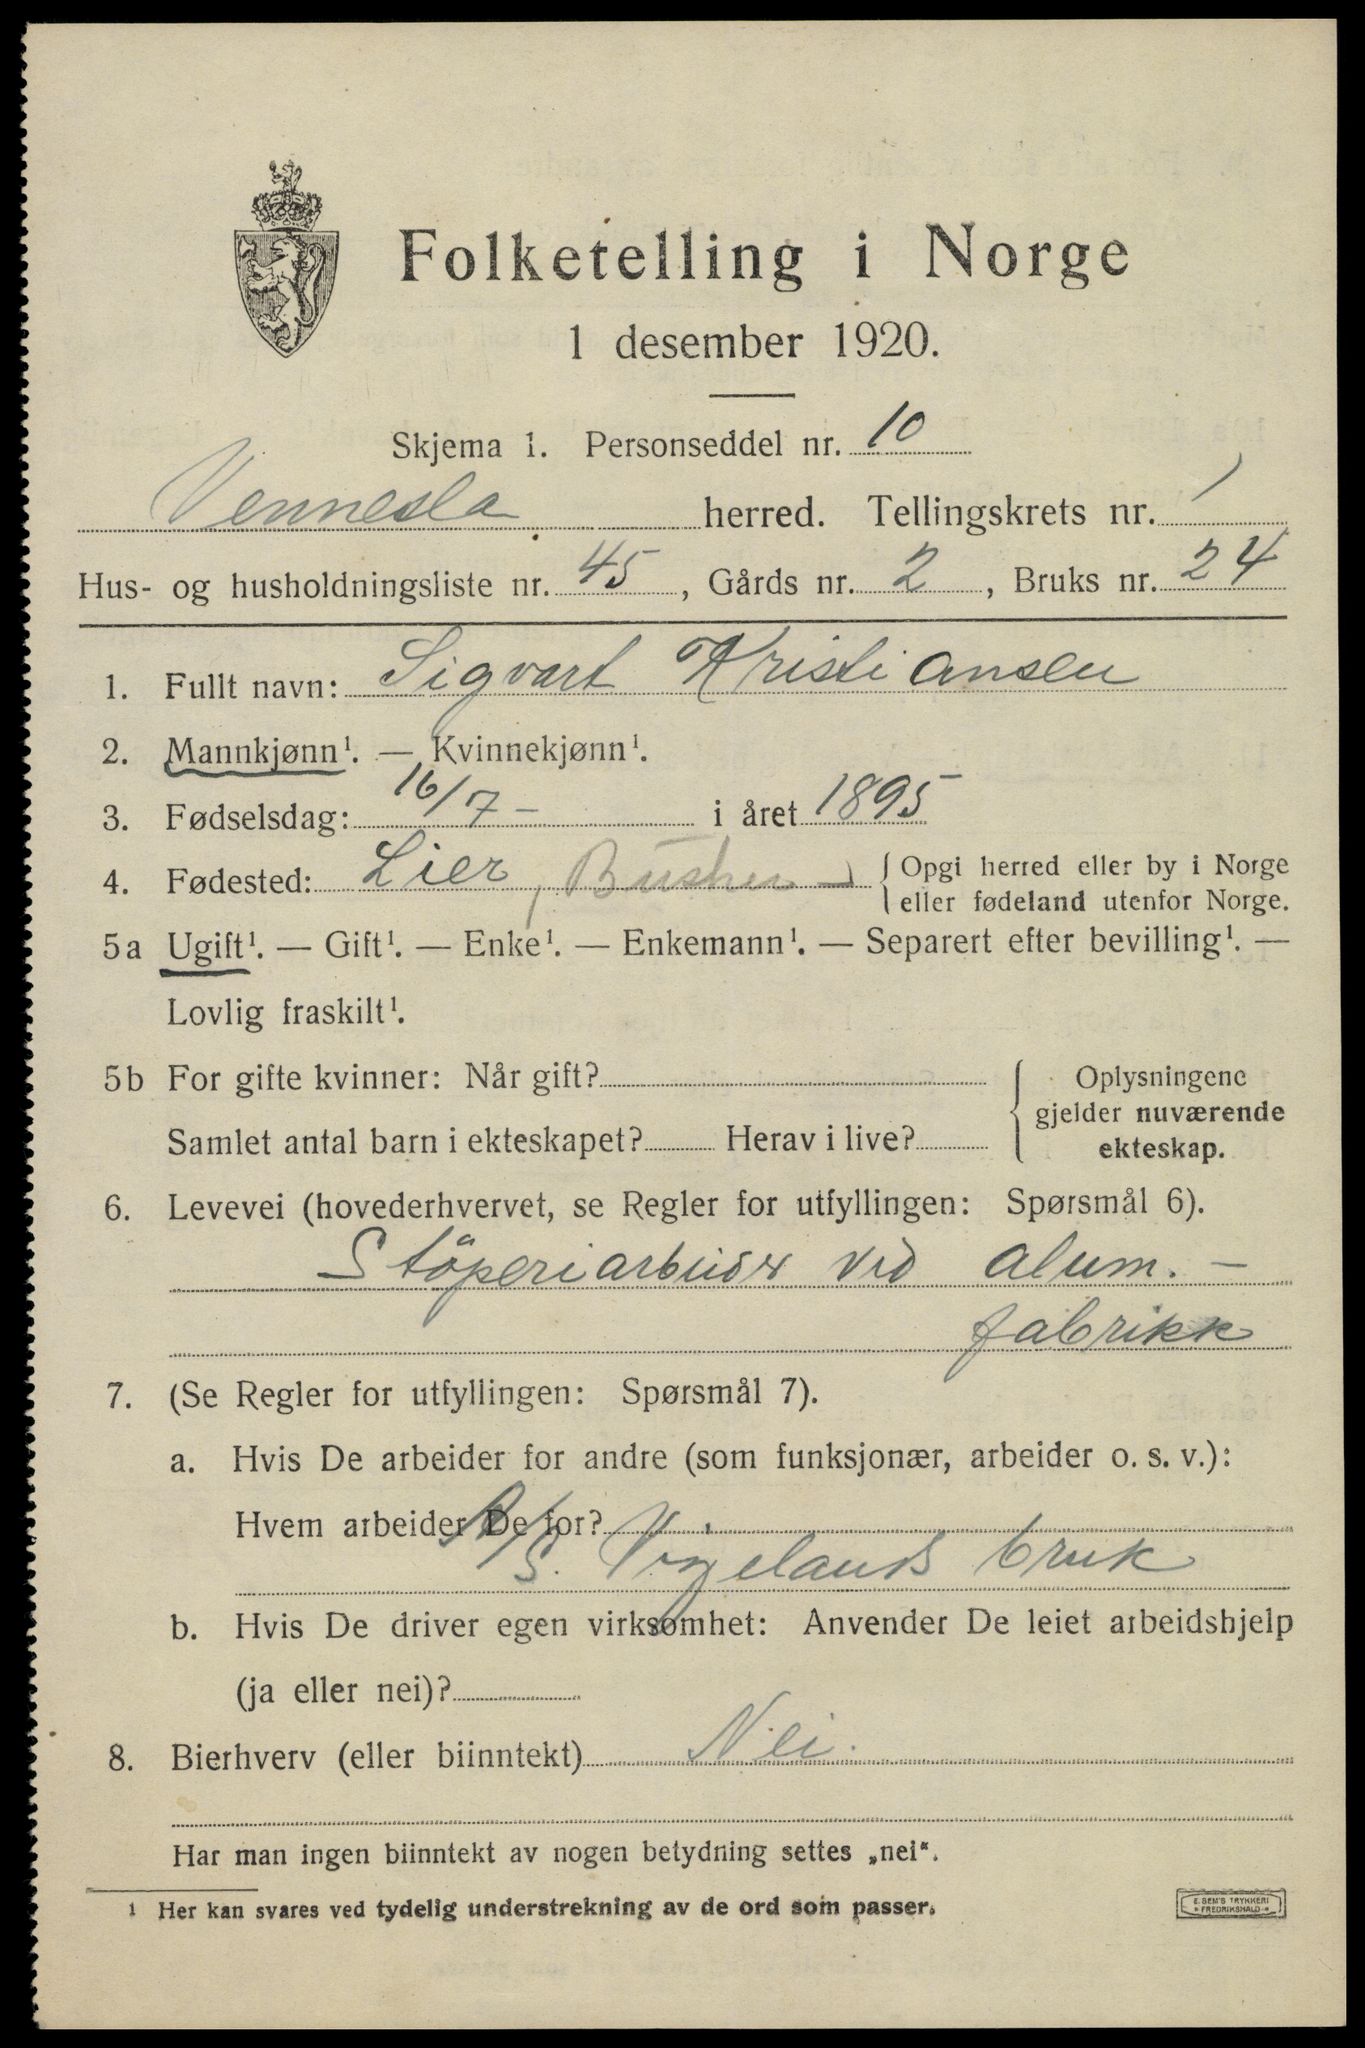 Folketelling i Norge
1 desember 1920.
Skjema 1. Personseddel nr. 10
Vennesla herred. Tellingskrets nr. 1
Hus- og husholdningsliste nr. 45, Gårds nr. 2, Bruks nr. 24
1. Fullt navn: Sigvart Kristiansen
2. Mannkjønn¹. — Kvinnekjønn¹.
3. Fødselsdag: 16/7 - i året 1895
4. Fødested: Lier, Opgi herred eller by i Norge
eller fødeland utenfor Norge.
5a Ugift¹. — Gift¹. — Enke¹. — Enkemann¹. — Separert efter bevilling¹. —
Lovlig fraskilt¹.
5b For gifte kvinner: Når gift?
Samlet antal barn i ekteskapet? Herav i live?
Oplysningene
gjelder nuværende
ekteskap.
6. Levevei (hovederhvervet, se Regler for utfyllingen: Spørsmål 6).
Stöperiarbeider ved alum. -
fabrikk
7. (Se Regler for utfyllingen: Spørsmål 7).
a. Hvis De arbeider for andre (som funksjonær, arbeider o. s. v.):
Hvem arbeider De for?
A/S. Vigelands bruk
b. Hvis De driver egen virksomhet: Anvender De leiet arbeidshjelp
(ja eller nei)?
8. Bierhverv (eller biinntekt) Nei.
Har man ingen biinntekt av nogen betydning settes „nei“.
1 Her kan svares ved tydelig understrekning av de ord som passer.
E. SEM'S TRYKKERI
FREDRIKSHALD